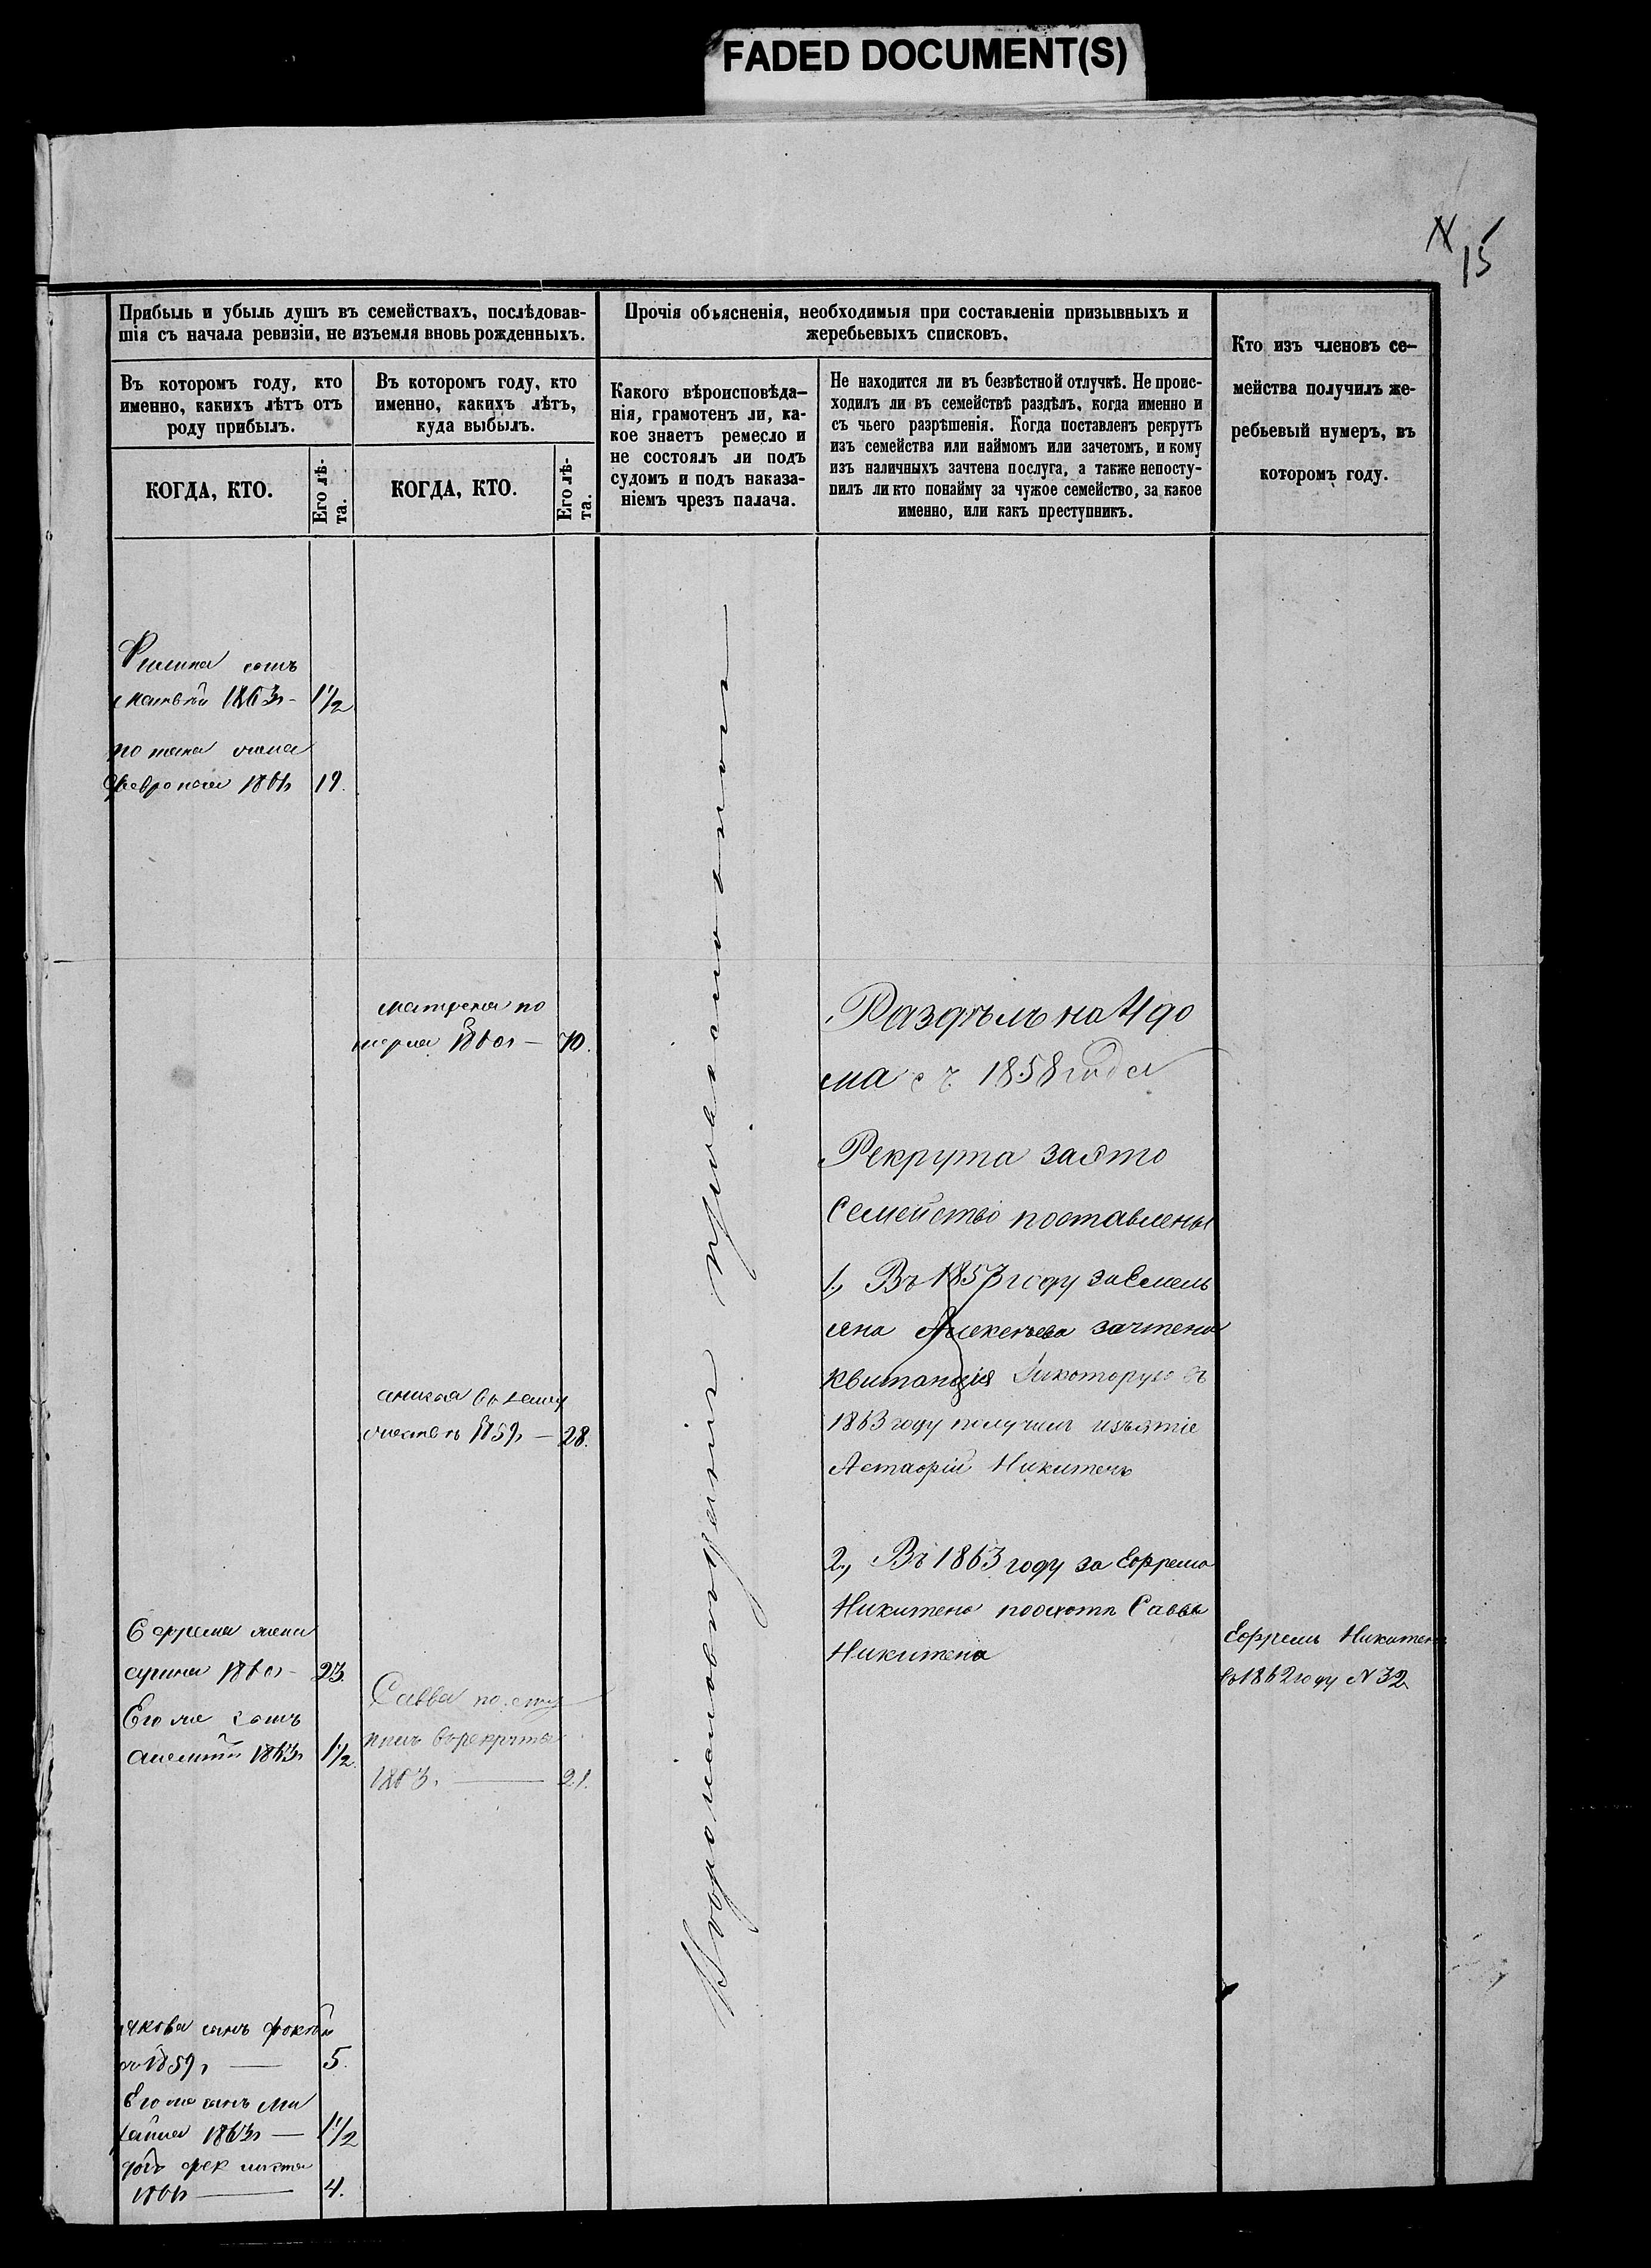 FADED DOCUMENT(S)
15
Прибыль и убыль душъ въ семействахъ, послѣдовав-
шія съ начала ревизіи, не изъемля вновь рожденныхъ.
Прочія объясненія, необходимыя при составленіи призывныхъ и
жеребьевыхъ списковъ.
Кто изъ членовъ се-
мейства получилъ же-
ребьевый нумеръ, въ
которомъ году.
Въ которомъ году, кто
именно, какихъ лѣтъ отъ
роду прибылъ.
Въ которомъ году, кто
именно, какихъ лѣтъ,
куда выбылъ.
Какого вѣроисповѣда-
нія, грамотенъ ли, ка-
кое знаетъ ремесло и
не состоялъ ли подъ
судомъ и подъ наказа-
ніемъ чрезъ палача.
Не находится ли въ безвѣстной отлучкѣ. Не проис-
ходилъ ли въ семействѣ раздѣлъ, когда именно и
съ чьего разрѣшенія. Когда поставленъ рекрутъ
изъ семейства или наймомъ или зачетомъ, и кому
изъ наличныхъ зачтена послуга, а также непосту-
пилъ ли кто понайму за чужое семейство, за какое
именно, или какъ преступникъ.
КОГДА, КТО.
Его лѣ-
та.
КОГДА, КТО.
Его лѣ-
та.
Филипа сынъ
Матвѣй 1863 - 1 1/2
жена
Февронья 19.
Матрена по
мерла 1860 - 70.
Раздѣлъ на 4 до
ма съ 1858 года
Рекрута за это
Семейство поставлены
1, Въ 1857 году за Емель
яна Алексѣева зачтена
квитанція за которую въ
1863 году получилъ изъятіе
Никитенъ
1859 - 28.
2, Въ 1863 году за Ефрема
Никитена Савва
Никитена
Ефрема жена
1860 - 23.
Его же сынъ
1863 1 1/2
Савва посту
пилъ въ рекруты
1863. 21.
Ефремъ Никитенъ
въ 1862 году N 32
Якова сынъ
1859, — 5.
Его же сынъ Ми
хайла 1863 — 1 1/2
дочь Фек
4.
вероисповеданія православнаго